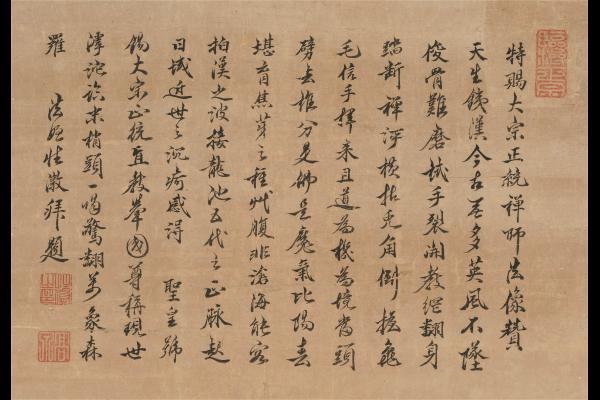 特賜大宗正統禪師法像贊
天生鐵漢今古無多英風不墜
俊骨難磨拭手裂開教網翻身
踏斷禪河橫拈兔角倒握龜
毛信手擇來且道為機為境當頭
劈去誰分是佛是魔氣比陽春
堪育焦芽之種艸腹非滄海能容
拍漢之波接龍池五代之正脉起
日域近世之沉痾感得 聖皇號
錫大宗正統直教舉國尊稱現世
滹沱末梢頭一喝驚翻萬象森
羅 法姪性潡拜題